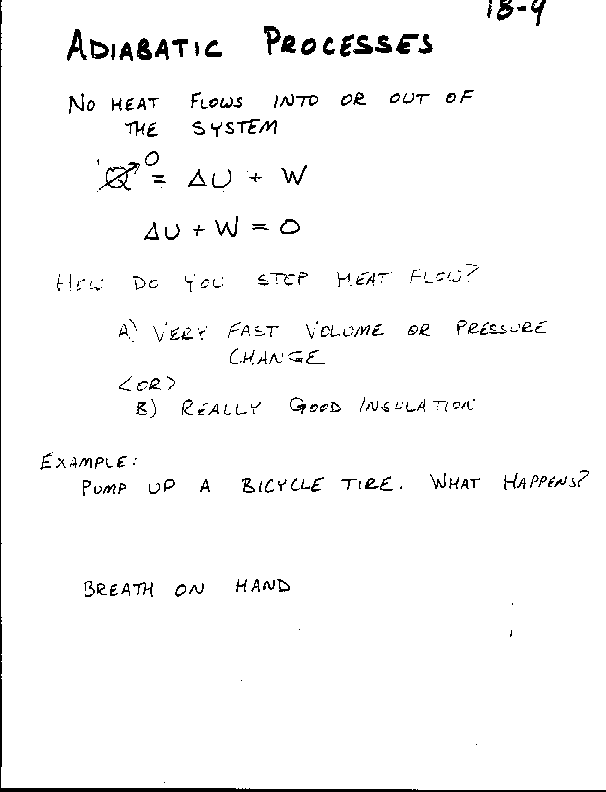 18-9
ADIABATIC PROCESSES
NO HEAT FLOWS INTO OR OUT OF
THE SYSTEM
Q→0 = ΔU + W
ΔU + W = 0
HOW DO YOU STOP HEAT FLOW?
A) VERY FAST VOLUME OR PRESSURE
CHANGE
<OR>
B) REALLY GOOD INSULATION
EXAMPLE:
PUMP UP A BICYCLE TIRE. WHAT HAPPENS?
BREATH ON HAND